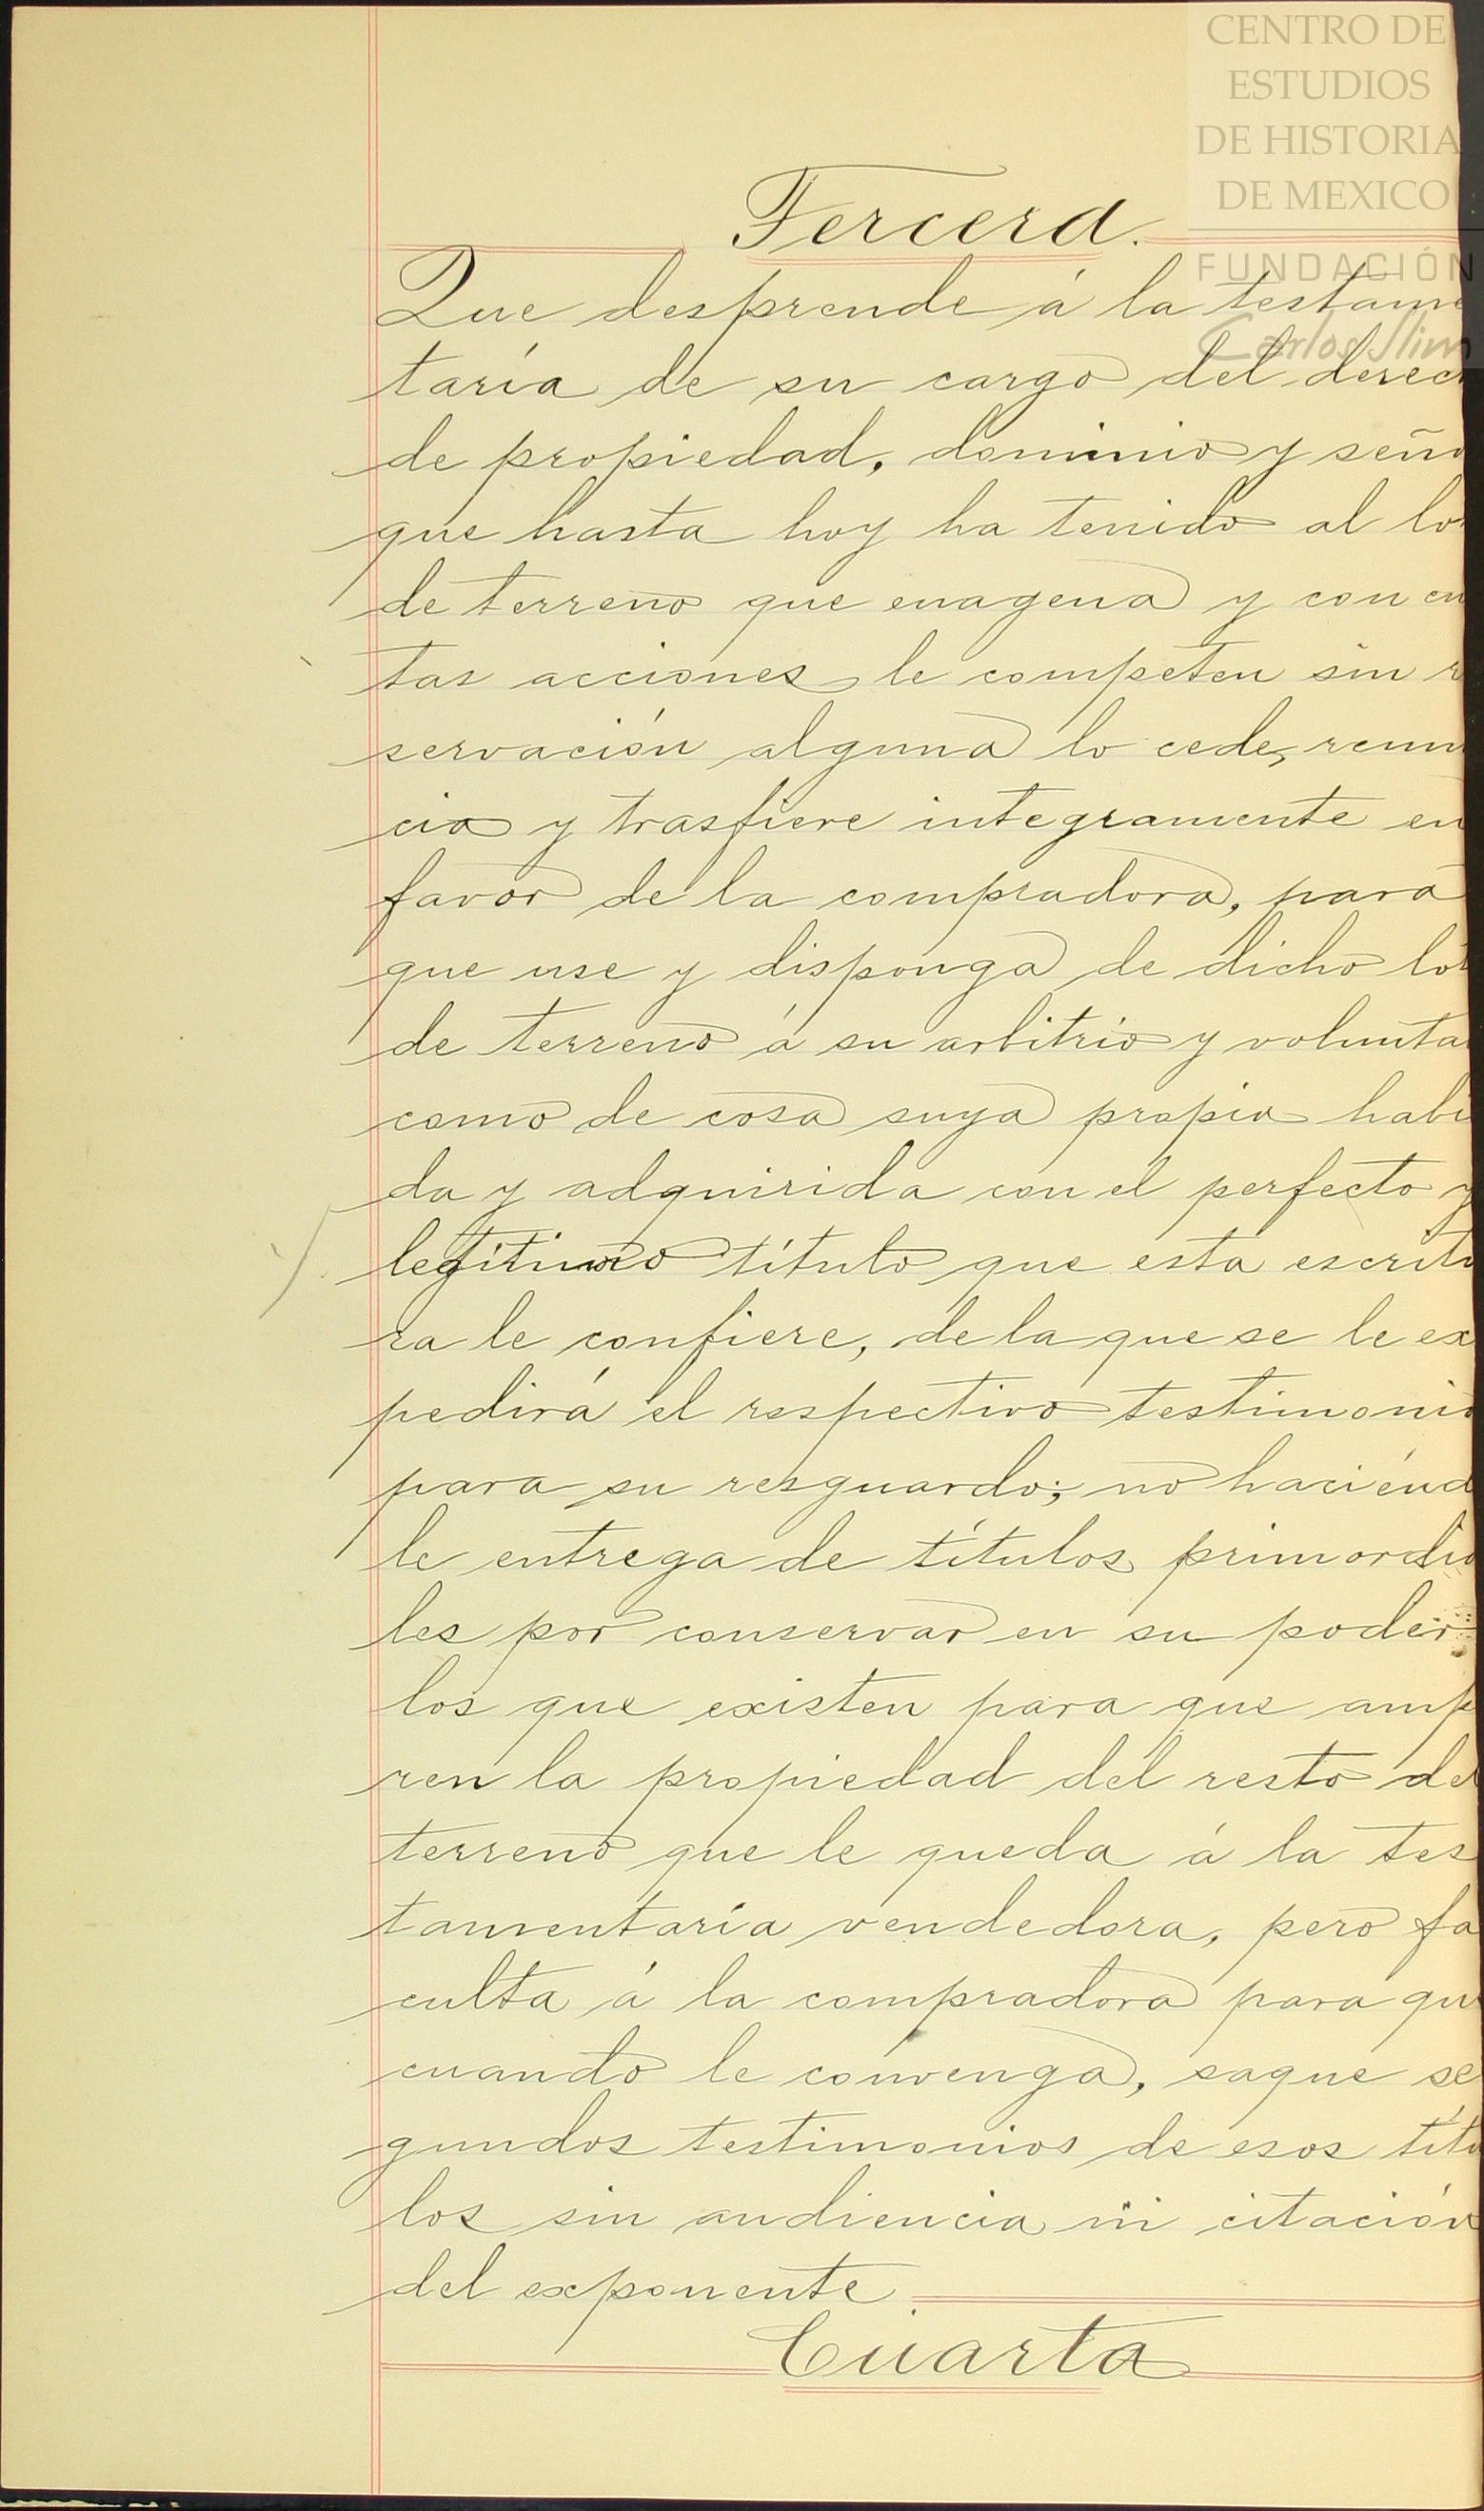 CENTRO DE
ESTUDIOS
DE HISTORIA
DE MEXICO
FUNDACIÓN
Carlos Slim
Tercera.
Que desprende á la testame
taría de su cargo del derec
de propiedad, dominio y seño
que hasta hoy ha tenido al lo
de terreno que enagena y con cu
tas acciones le competen sin r
servación alguna lo cede, renun
cia y trasfiere integramente en
favor de la compradora, para
que use y disponga de dicho lot
de terreno á su arbitrio y volunta
como de cosa suya propia habi
da y adquirida con el perfecto y
legítimo título que esta escritu
ra le confiere, de la que se le ex
pedirá el respectivo testimonio
para su resguardo; no haciénd
le entrega de títulos primordia
les por conservar en su poder
los que existen para que amp
ren la propiedad del resto del
terreno que le queda á la tes
tamentaría vendedora, pero fa
culta á la compradora para qu
cuando le convenga, saque se
gundos testimonios de esos títu
los sin audiencia ni citación
del exponente.
Cuarta